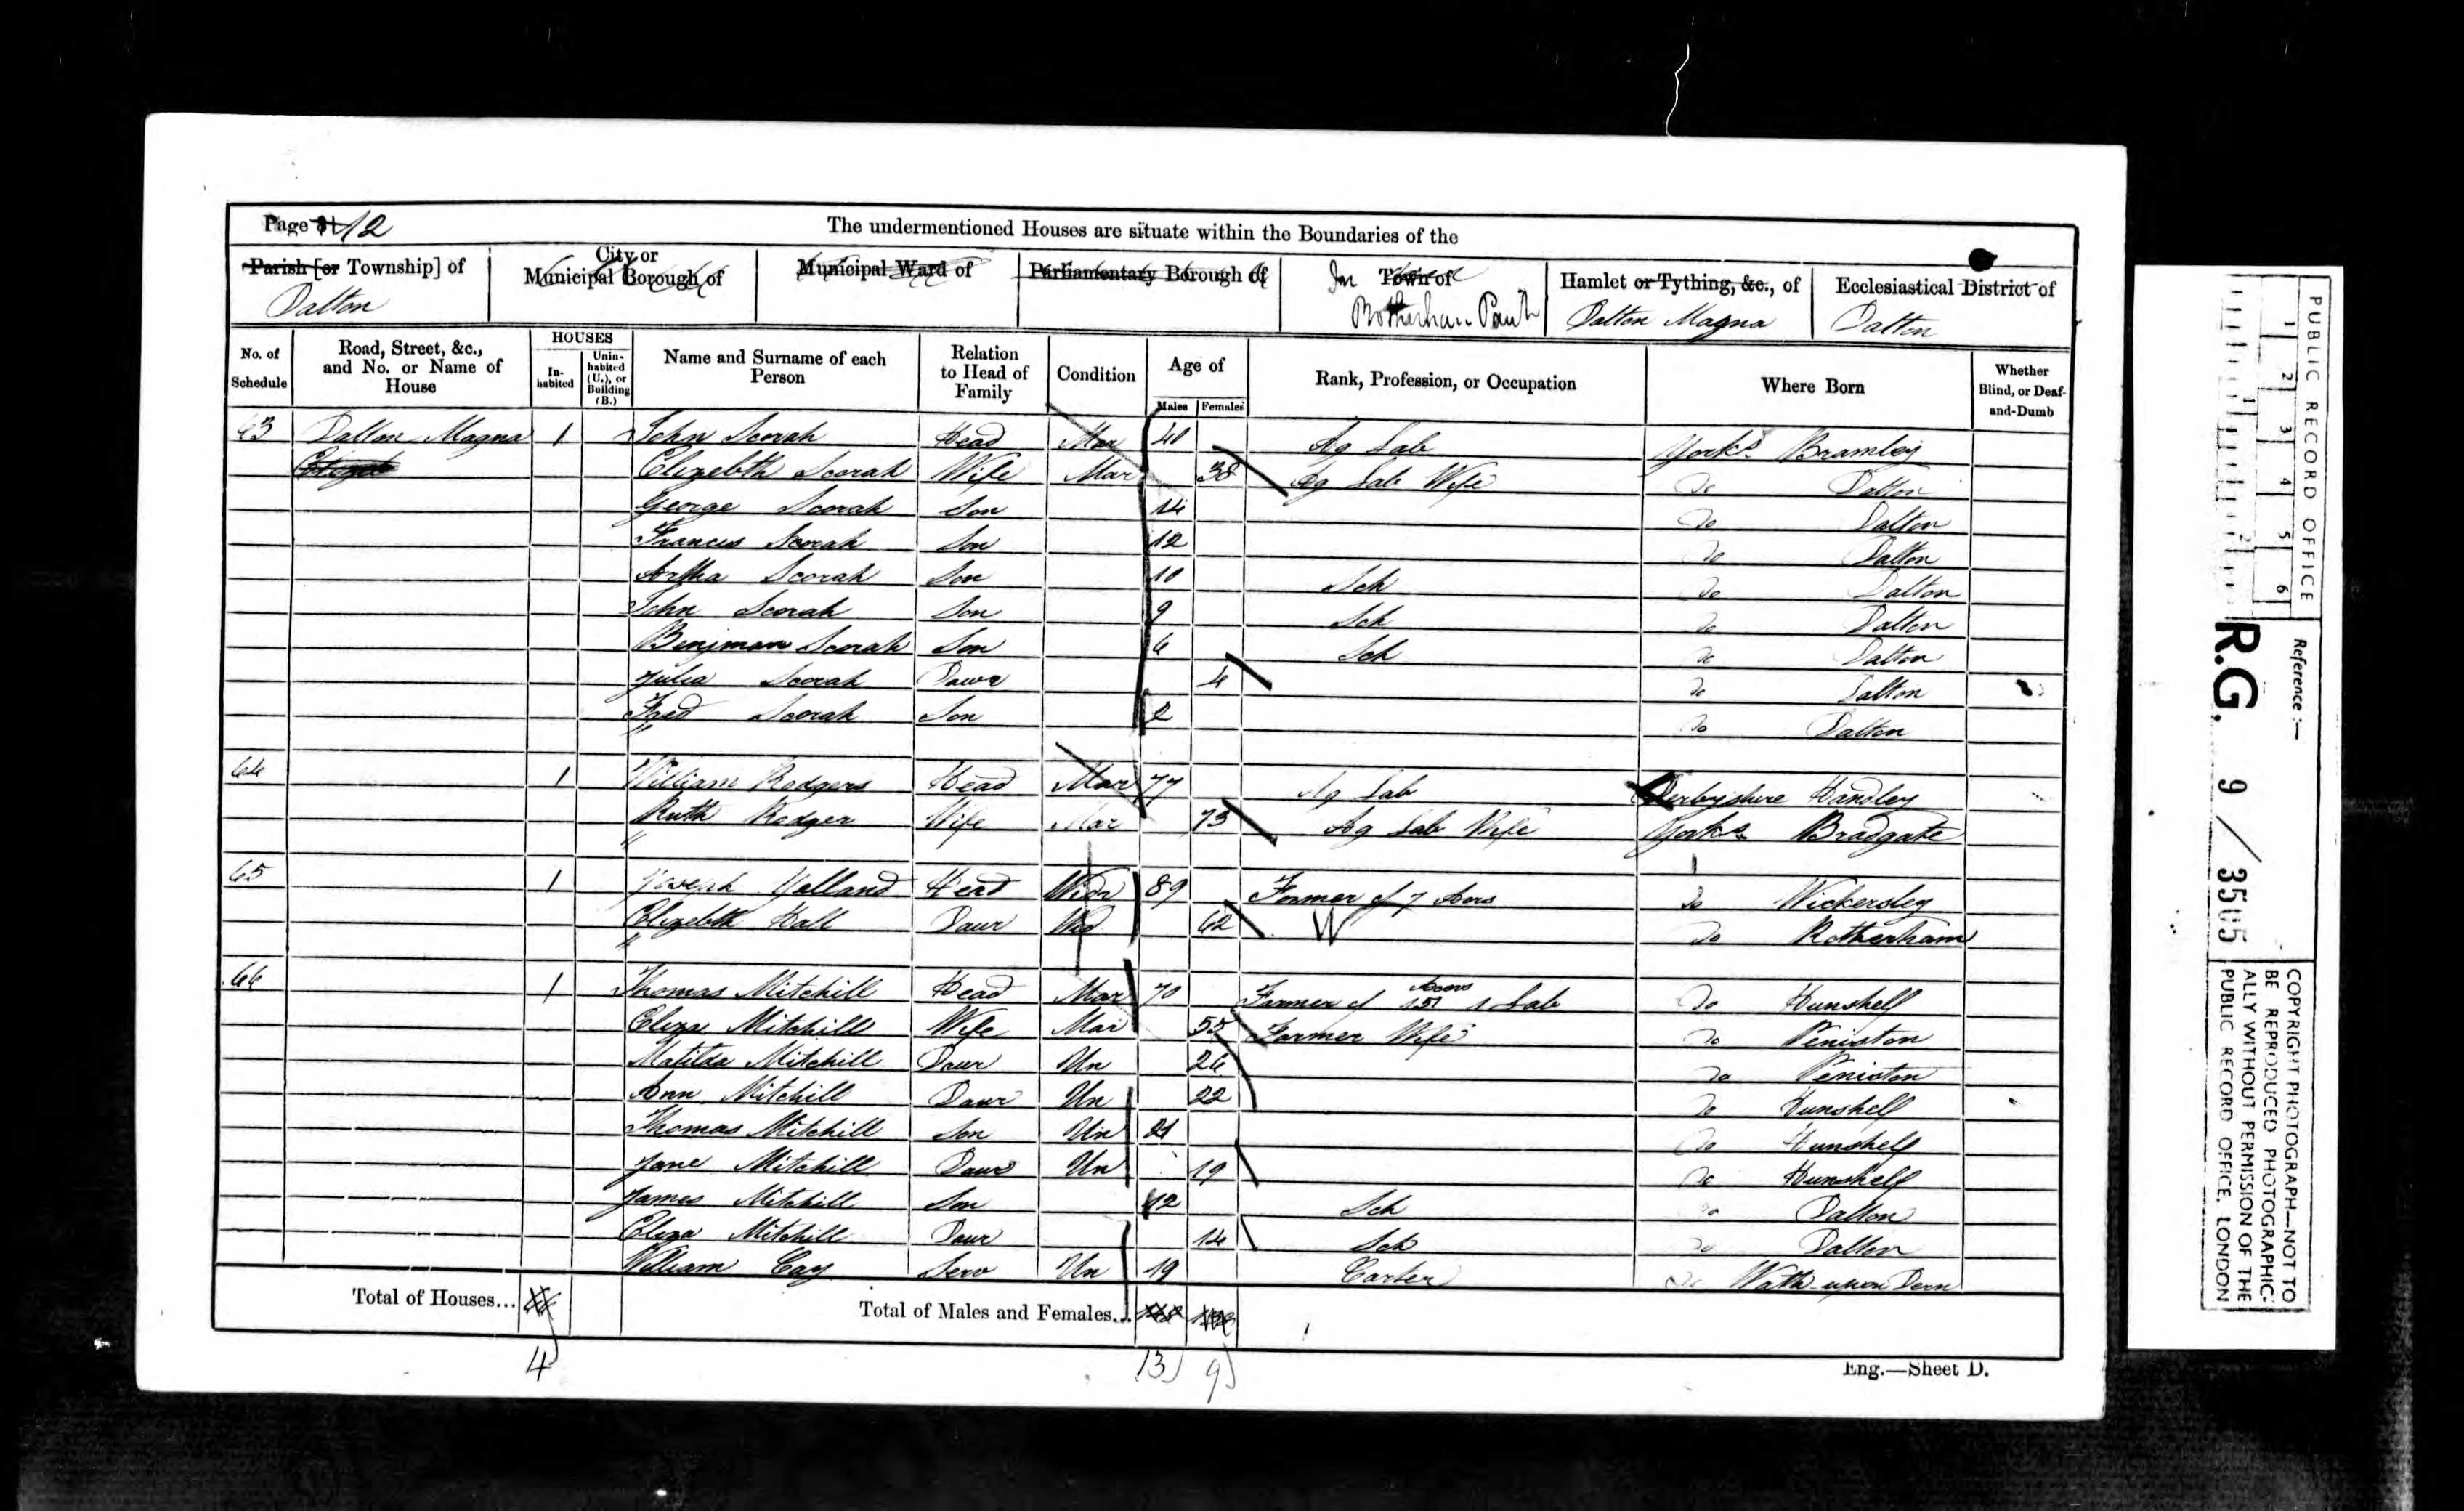 Page 12
The undermentioned Houses are situate within the Boundaries of the
Parish [or Township] of
City or Municipal Borough of
Municipal Ward of
Parliamentary Borough of
In Town of
Hamlet or Tything, &c., of
Ecclesiastical District of
Dalton
Dalton Magna
Dalton
No. of Schedule
Road, Street, &c., and No. or Name of House
HOUSES
In-habited
Unin-habited (U.), or Building (B.)
Name and Surname of each Person
Relation to Head of Family
Condition
Age of
Males
Females
Rank, Profession, or Occupation
Where Born
Whether Blind, or Deaf-and-Dumb
63 Dalton Magna 1 John Scorah Head Mar 40 Ag Lab Yorks Bramley
Elizebth Scorah Wife Mar 38 Ag Lab Wife Do Dalton
George Scorah Son 14 Do Dalton
Frances Scorah Son 12 Do Dalton
Artha Scorah Son 10 Sch Do Dalton
John Scorah Son 9 Sch Do Dalton
Benjman Scorah Son 6 Sch Do Dalton
Julia Scorah Dawr 4 Do Dalton
Fred Scorah Son 2 Do Dalton
64 1 William Rodgers Head Mar 77 Ag Lab Derbyshire Handley
Ruth Rodger Wife Mar 73 Ag Lab Wife Yorks Bradgate
65 1 Joseph Yelland Head Widr 89 Farmer of 7 Acrs Do Wickersley
Elizebth Hall Daur Wid 62 W Do Rotherham
66 1 Thomas Mitchill Head Mar 70 Farmer of 151 Acres 1 Lab Do Hunshelf
Eliza Mitchill Wife Mar 55 Farmer Wife Do Peniston
Matilda Mitchill Daur Un 26 Do Peniston
Ann Mitchill Daur Un 22 Do Hunshelf
Thomas Mitchill Son Un 21 Do Hunshelf
Jane Mitchill Daur Un 19 Do Hunshelf
James Mitchill Son 12 Sch Do Dalton
Eliza Mitchill Daur 14 Sch Do Dalton
William Cay Serv Un 19 Carter Do Wath upon Dern
Total of Houses...
Total of Males and Females...
4 13 9
Eng.—Sheet D.
PUBLIC RECORD OFFICE
1 2 3 4 5 6
Reference :—
R.G. 9 / 3505
COPYRIGHT PHOTOGRAPH—NOT TO
BE REPRODUCED PHOTOGRAPHIC-
ALLY WITHOUT PERMISSION OF THE
PUBLIC RECORD OFFICE, LONDON